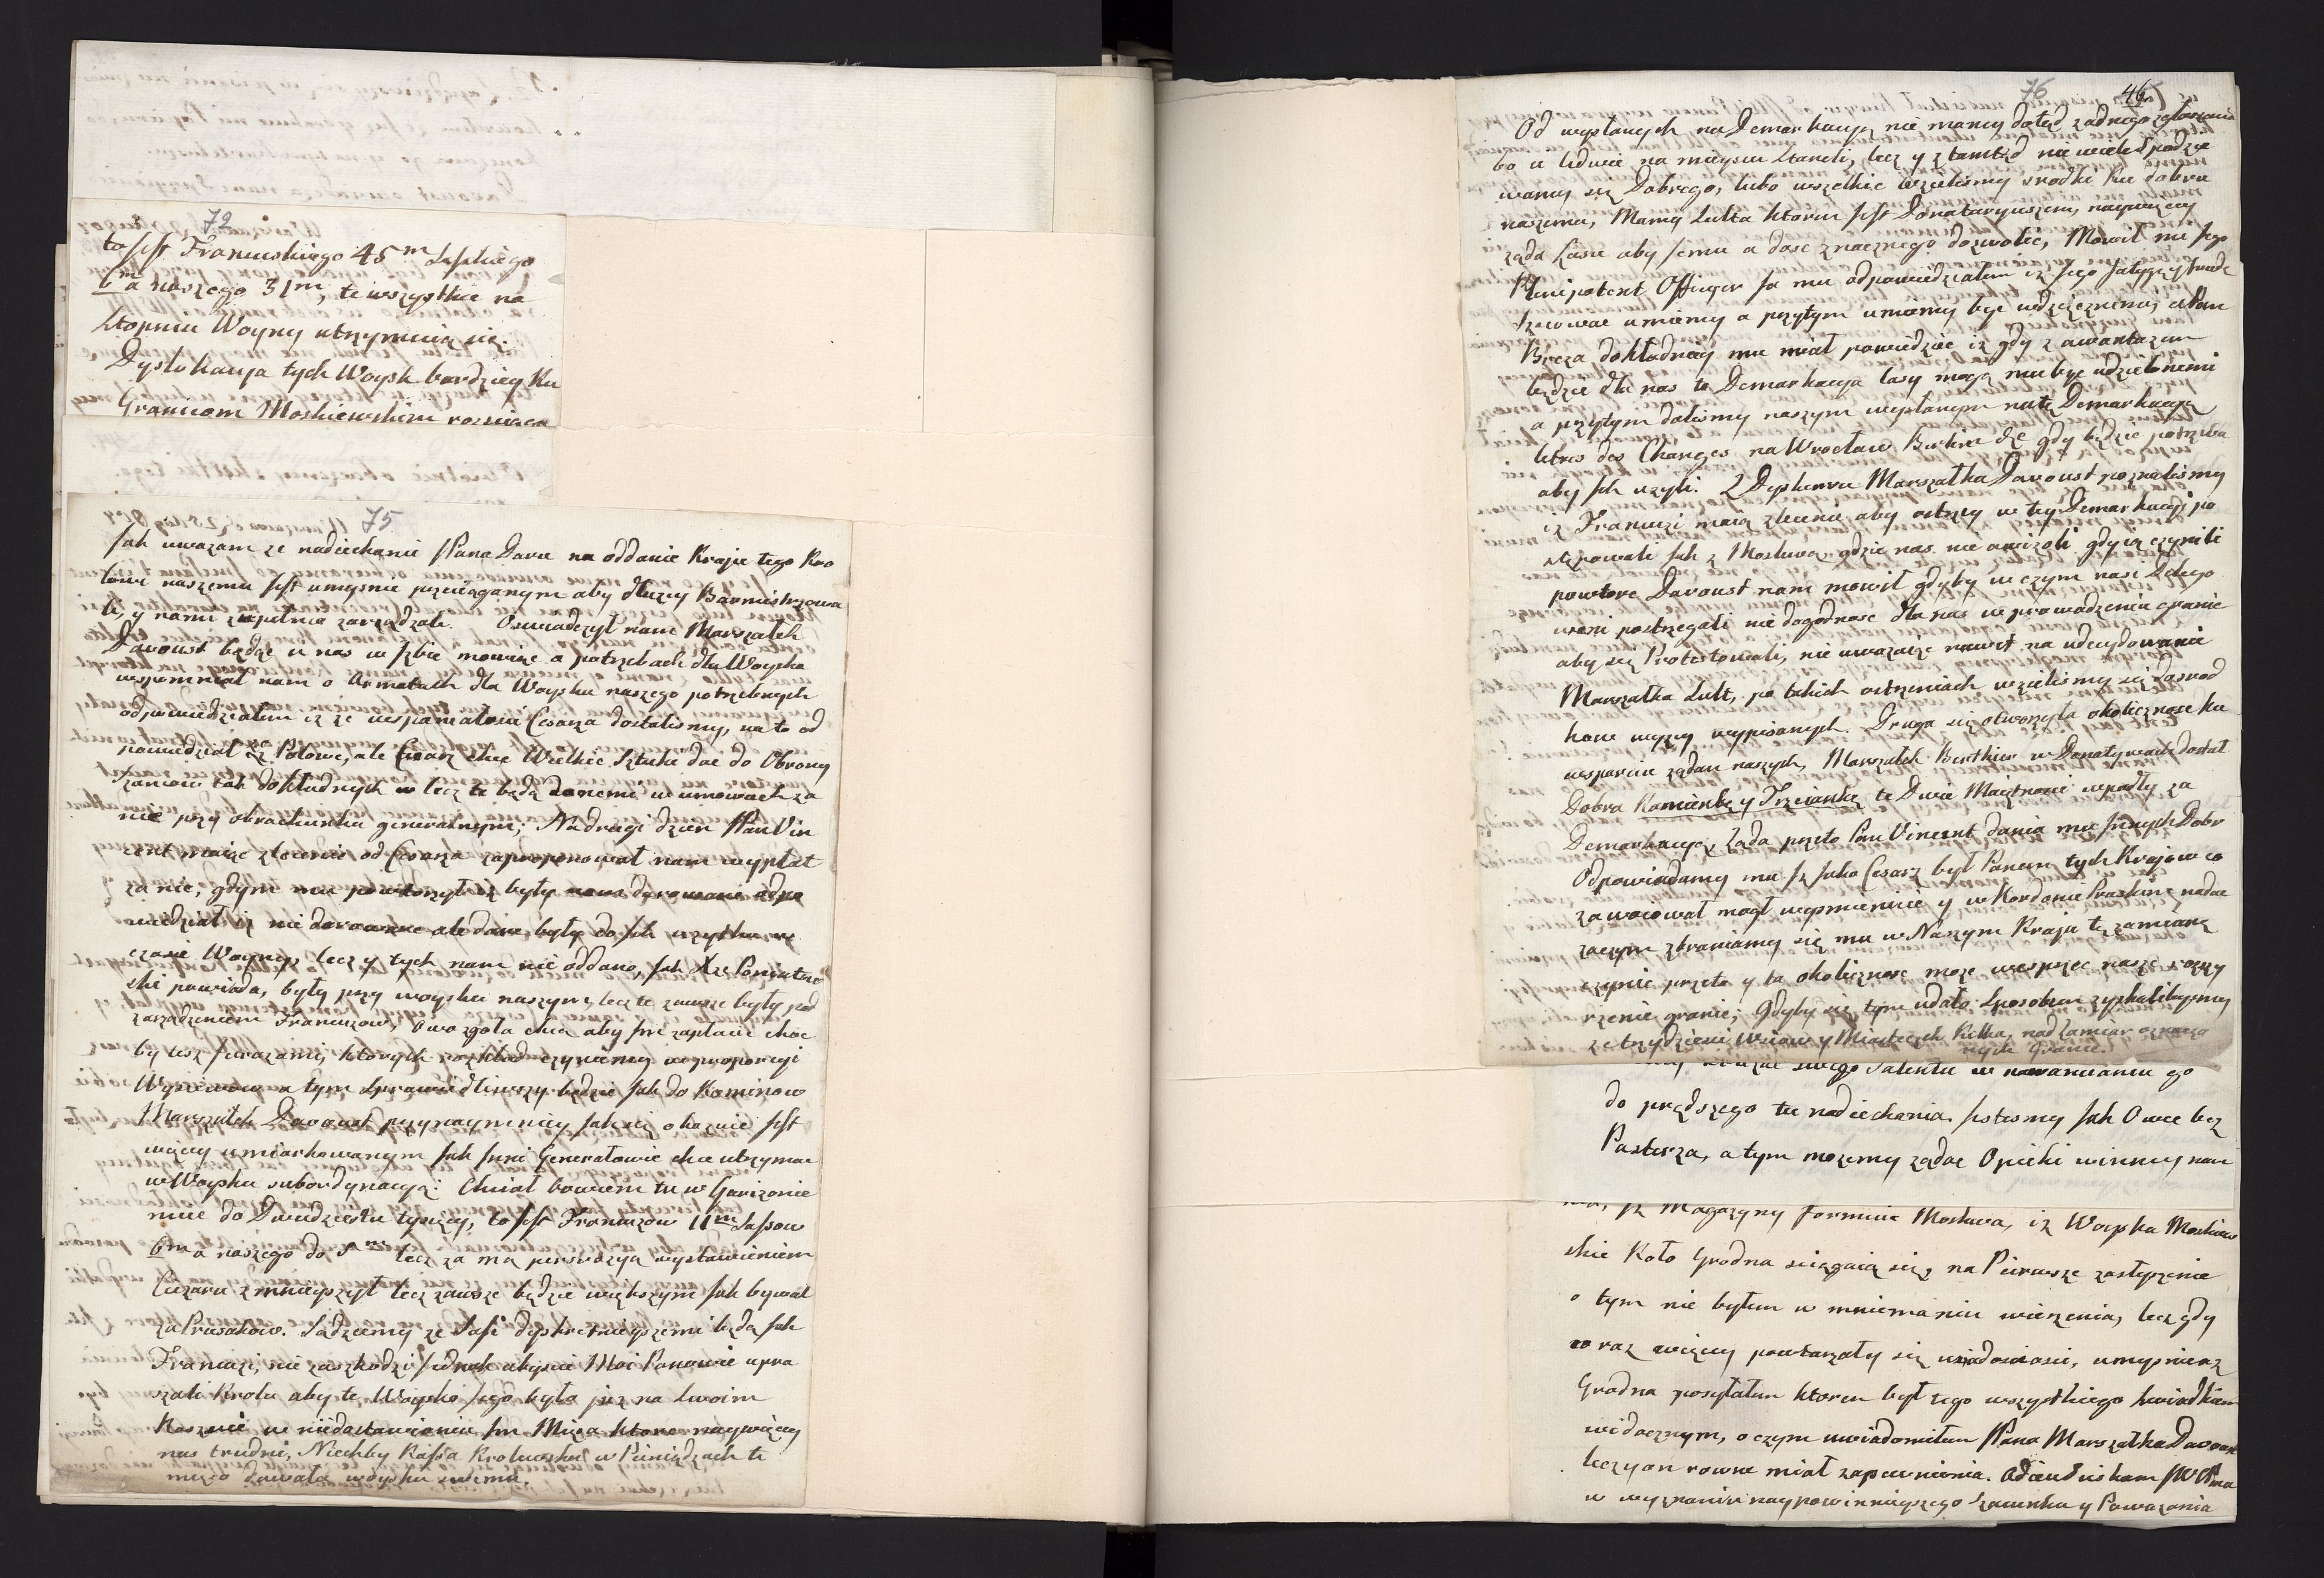 72
to jest Francuskiego 45m Saskiego
6m a naszego 31m, te wszystkie na
Stopniu Woyny utrzymuią się.
Dyslokacya tych Woysk bardziey ku
Granicom Moskiewskim
75
Jak uwazam ze nadiechanie JPana Daru na oddanie Kraju tego Kro
lowi naszemu jest umyslnie przeciąganym aby dłuzey
li, y nami zupełnie zarządzali. Oswiadczył nam Marszałek
Davoust będąc u nas w Jzbie mowiąc o potrzebach dla Woyska
wspomniał nam o Armatach dla Woyska naszego potrzebnych
odpowiedziałem iz ze wspaniałosci Cesarza dostalismy, na to od
powiedział Ze Polowe, ale Cesarz chce Wielkie Sztuki dac do Obrony
Zamkow tak dokładnych lecz te będą w umowach za
nie przy obrachunku generalnym; Na drugi dzien JPan Vin
cent maiąc zlecenie od Cesarza zaproponował nam wypłat
za nie; gdym mu powtorzył iz były nam darowane odpo
wiedział iz nie darowane ale dane były do Jch uzytku w
czasie Woyny, lecz y tych nam nie oddano, Jak Xże Poniatow
ski powiada, były przy woysku naszym, lecz te zawsze były pod
zarządzeniem Francuzow, owo zgoła chcą aby Jm zapłacic choc
by tesz
Marszałek Davoust przynaymniey Jak się okazuie jest
więcey umiarkowanym Jak Jnni Generałowie chce utrzymac
w Woysku subordynacyą: Chciał bowiem tu w Garnizonie
miec do Dwudziestu tysięcy, to jest Francuzow 11m Sassow
6m a naszego do lecz za mą perswazyą wystawieniem
Ciezaru zmnieyszył lecz zawsze będzie większym Jak bywał
za Prusakow. Sądziemy ze Sasi dyskretnieyszemi będą Jak
Francuzi, nie zaszkodzi jednak abyscie Moi Panowie upra
szali Krola aby te Woysko Jego było juz na Swoim
Koszcie w niedostawieniu Jm Mięsa ktore naywięcey
nas trudni, Niechby Kassa Krolewska w Pieniądzach te
mięso dawała woysku swemu.
76 46
Od wysłanych na Demarkacyą nie mamy dotąd zadnego zgłoszenia
bo w lidwie na mieyscu Staneli, lecz y z tamtąd nie wiele spodzie
wamy się Dobrego, lubo wszelkie wzielismy srodki ku dobru
naszemu, Mamy Sulta ktoren jest Donataryuszem, naypierwey
ząda Lasu aby Jemu a dosc znacznego dozwolic, Mowił mi Jego
Plenipotent Officyer Ja mu odpowiedziałem iz Jego fatygę y trudy
Szacowac umiemy a przytym umiemy byc wdzięcznemi, a Pan
Breza dokładniey mu miał powiedziec iz gdy z awantazem
będzie dla nas te Demarkacya lasy mogą mu byc udzielonemi
a przytym dalismy naszym wysłanym na tę Demarkacyą
letres des Changes na Wrocław, Berlin &c gdy będzie potrzeba
aby Jch uzyli. Z Dyskursu Marszałka Davoust poznalismy
iz Francuzi maią zlecenie aby ostrzey w tey Demarkacyi po
stępowali Jak z Moskwą, gdzie nas nie awizoli gdy ią czynili
powtore Davoust nam mowił gdyby w czym nasi Delego
wani postrzegali nie dogodnosc dla nas w prowadzeniu granic
aby się Protestowali, nie uwazaiąc nawet na udecydowanie
Marszałka Sult, po takich ostrzeniach wzielismy się do srod
kow wyzey wypisanych. Druga się otworzyła okolicznosc ku
wsparciu ządan naszych, Marszałek Berthier w Donatywach dostał
Dobra Kamiankę y Trzciankę te Dwie Maiętnosci wpadły za
Demarkacyą, Ząda przeto Pan Vincent dania mu Jnnych Dobr
Odpowiadamy mu Jz Jako Cesarz był Panem tych Krajow co
zawoiował mogł wspmiennie y w Kordonie Pruskim nadac
zaczym zbraniamy się mu w Naszym Kraju tę zamianę
czynic przeto y ta okolicznosc moze wesprzec nasze rozszy
rzenie granic; Gdyby się tym udało Sposobem zyskalibysmy
ze trzydziesci Wsiow y Miasteczek Kilka, nad Zamiar oznaczo
nych Granic.
swego Talentu w namawianiu go
do prędszego tu nadiechania. Jestesmy Jak Owce bez
Pasterza, a tym mozemy ządac Opieki winney nam
Jz Magazyny formuie Moskwa, iz Woyska Moskiew
skie Koło Grodna sciągaią się, na Pierwsze zasłyszenie
o tym nie byłem w mniemaniu wierzenia, lecz gdy
co raz więcey powtarzały się wiadomosci, umyslnie z
Grodna posyłałem ktoren był tego wszystkiego swiadkiem
widocznym, o czym uwiadomiłem JPana Marszałka Davoust
lecz y on rowne miał zapewnienia.
w wyznaniu naypowinnieyszego Szacunku y Powazania